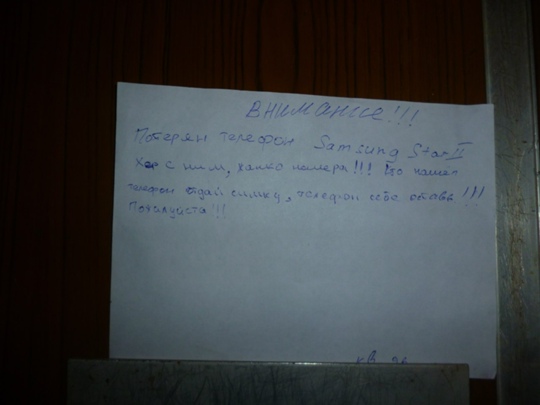 ВНИМАНИЕ!!!
Потерян телефон Samsung Star II
Хер с ним, жалко номера!!! Кто нашёл
телефон отдай симку, телефон себе оставь!!!
Пожалуйста!!!
кв